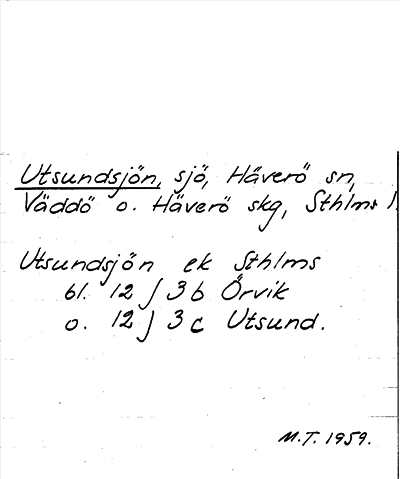 Utsundsjön, sjö, Häverö sn,
Väddö o. Häverö skg, Sthlms l.
Utsundsjön ek Sthlms
bl. 12 J 3b Örvik
o. 12 J 3c Utsund.
M.T. 1959.